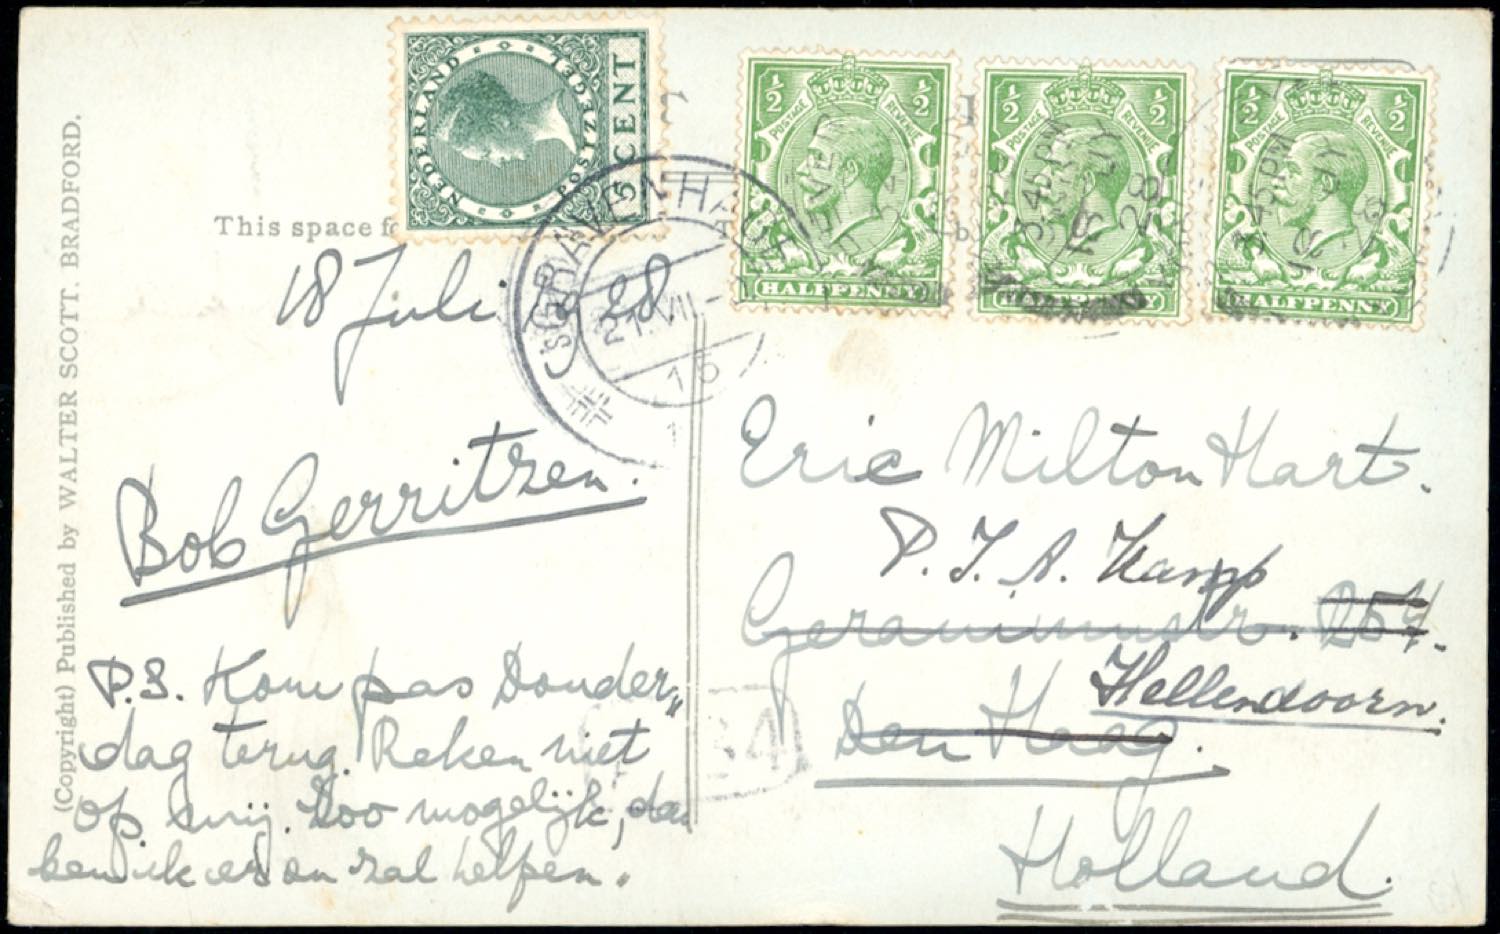 (Copyright) Published by WALTER SCOTT. BRADFORD.
This space
NEDERLAND
POSTZEGEL
5 CENT
½ ½
POSTAGE REVENUE
HALFPENNY
½ ½
POSTAGE REVENUE
HALFPENNY
½ ½
POSTAGE REVENUE
HALFPENNY
3.45 PM
18 JY
28
3.45 PM
18 JY
'S GRAVENHAGE
21.VII
15
1
18 Juli 28.
Bob Gerritzen.
P.S. Kom pas Donder„
dag terug. Reken niet
op mij. Zoo mogelijk, dan
ben ik er en zal helpen.
Eric Milton Hart.
P. J. A. Kamp
Geraniumstr. 254.
Hellendoorn.
Den Haag.
Holland.